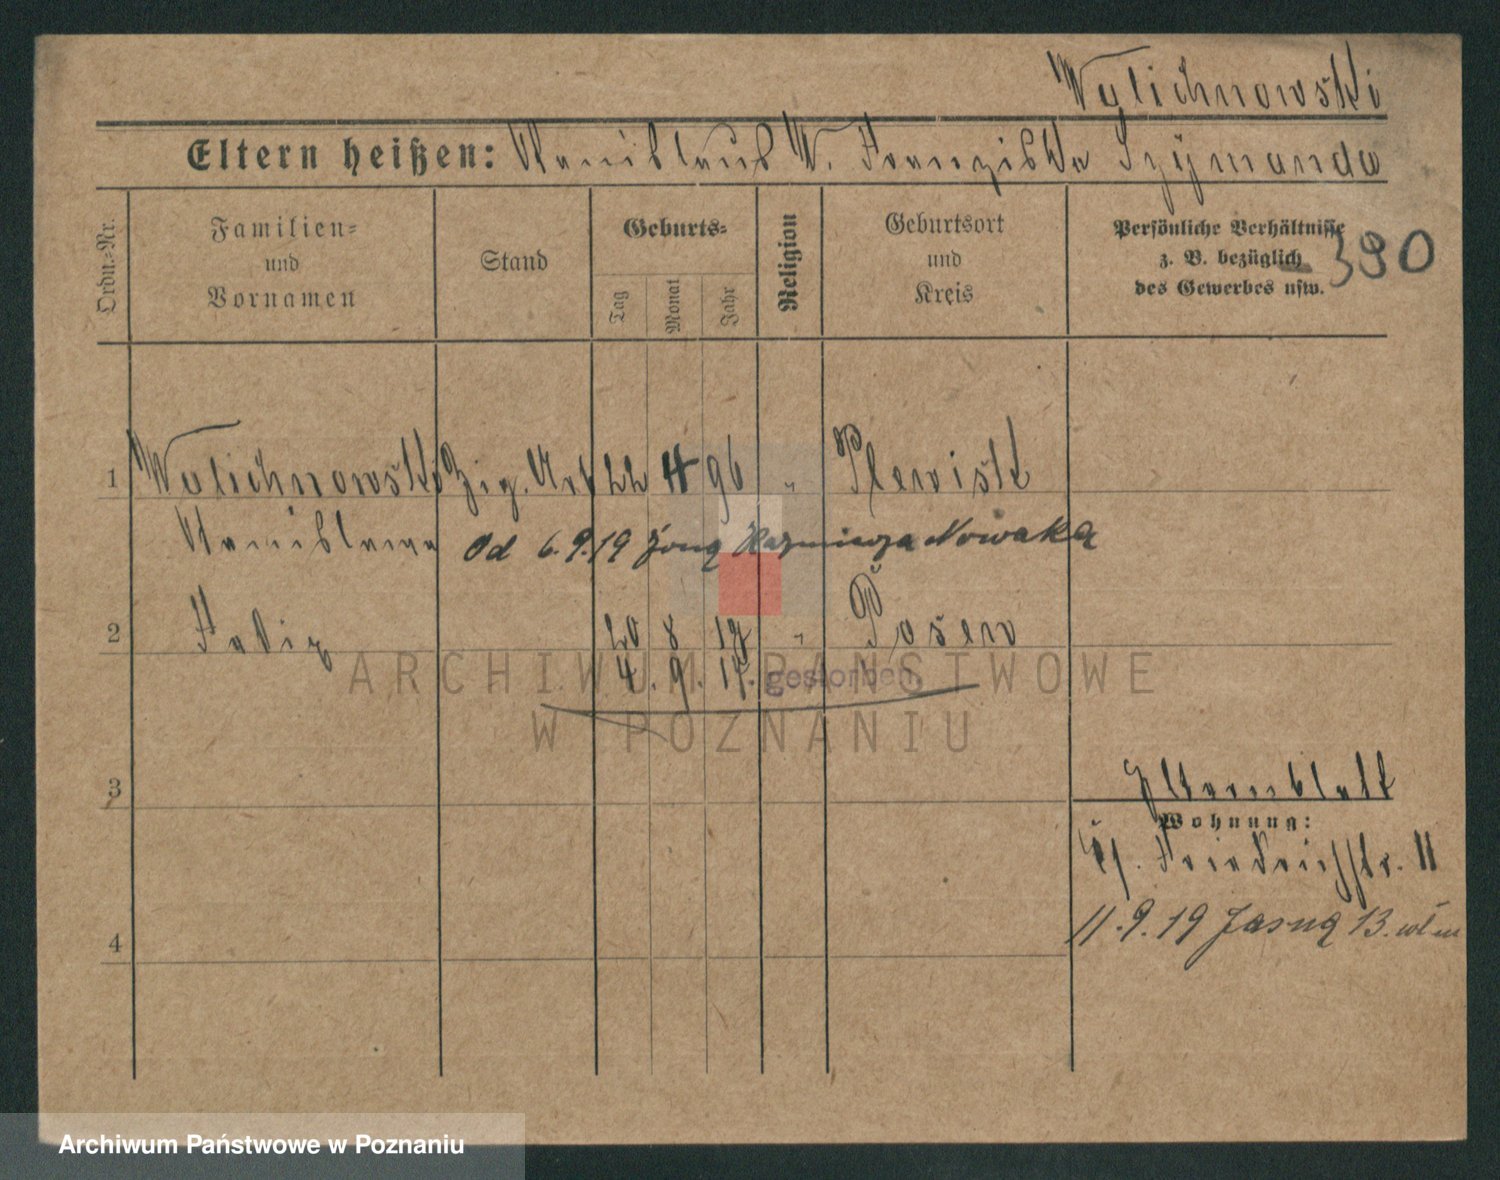 Wylichnowski
Eltern heißen: Stanislaus W. Franziska Szymanda
Ordn.-Nr.
Familien-
und
Vornamen
Stand
Geburts-
Tag
Monat
Jahr
Religion
Geburtsort
und
Kreis
Persönliche Verhältnisse
z. B. bezüglich
des Gewerbes usw.
390
1 Wylichnowski Zig. Arb 22 4 96 " Plewisk
Stanislawa
Od 6.9.19 żoną Kazmierza Nowaka
2 Felix 20 8 17 " Posen
4. 9. 17. gestorben.
3
4
Elternblatt
Wohnung:
Friedrichstr. 11
11.9.19 Jasna 13.
ARCHIWUM PAŃSTWOWE
W POZNANIU
Archiwum Państwowe w Poznaniu